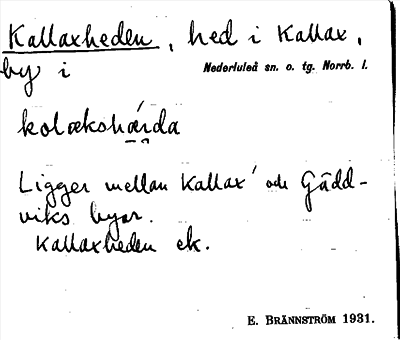 Kallaxheden, hed i Kallax,
by i Nederluleå sn. o. tg. Norrb. l.
kolækshǽıda
Ligger mellan Kallax och Gädd-
viks byar.
Kallaxheden ek.
E. BRÄNNSTRÖM 1931.